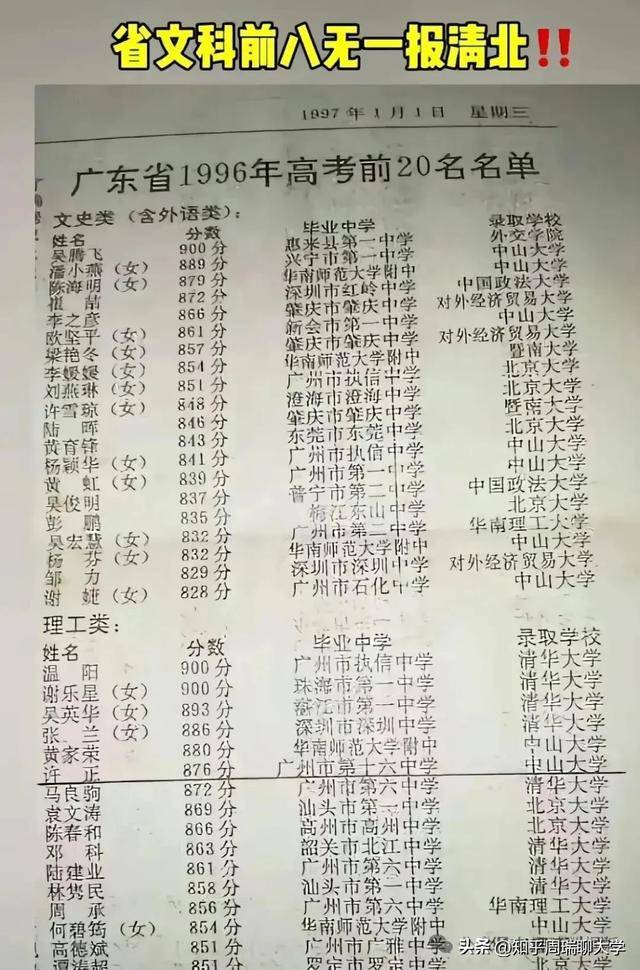 省文科前八无一报清北‼
1997年1月1日 星期三
广东省1996年高考前20名名单
文史类（含外语类）：
姓名 分数 毕业中学 录取学校
吴腾飞 900分 惠来县第一中学 外交学院
潘小燕（女） 889分 兴宁市第一中学 中山大学
陈海明（女） 879分 华南师范大学附中 中山大学
崔 喆 872分 深圳市红岭中学 中国政法大学
李之彦 866分 肇庆市肇庆中学 对外经济贸易大学
欧坚平（女） 861分 新会市第一中学 中山大学
梁艳冬（女） 857分 肇庆市肇庆中学 对外经济贸易大学
李媛媛（女） 854分 华南师范大学附中 暨南大学
刘燕琳（女） 851分 广州市执信中学 北京大学
许雪琼（女） 848分 澄海市澄海中学 北京大学
陆 晖 846分 肇庆市肇庆中学 暨南大学
黄育锋 843分 东莞市东莞中学 北京大学
杨颖华（女） 841分 广州市执信中学 中山大学
黄 虹（女） 839分 广州市第一中学 中山大学
吴俊明 837分 普宁市第二中学 中国政法大学
彭 鹏 835分 梅江东山中学 北京大学
吴宏慧（女） 832分 广州市第二中学 华南理工大学
杨 芬（女） 832分 华南师范大学附中 中山大学
邹 力 829分 深圳市深圳中学 对外经济贸易大学
谢 婕（女） 828分 广州市石化中学 中山大学
理工类：
姓名 分数 毕业中学 录取学校
温 阳 900分 广州市执信中学 清华大学
谢乐星（女） 900分 珠海市第一中学 清华大学
吴英华（女） 893分 市第一中学 清华大学
张 兰（女） 886分 深圳市深圳中学 清华大学
黄家荣 880分 华南师范大学附中 中山大学
许 正 876分 广州市第十六中学 中山大学
马良驹 872分 广州市第六中学 清华大学
袁文涛 869分 汕头市第一中学 北京大学
陈春和 866分 高州市高州中学 北京大学
邓 科 863分 韶关市北江中学 清华大学
陆建业 861分 广州市第六中学 清华大学
林隽民 858分 汕头市第一中学 清华大学
周 承 856分 广州市第六中学 华南理工大学
何碧筠（女） 854分 华南师范大学附中 中山大学
高德斌 851分 广州市广雅中学
谭涛超 851分 罗定市罗定中学
头条@知乎周瑞聊大学